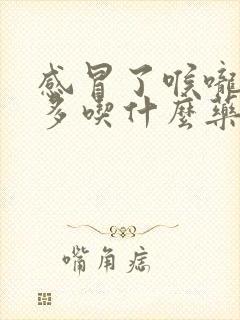 感冒了喉嚨
多喫什麼藥
嘴角痣